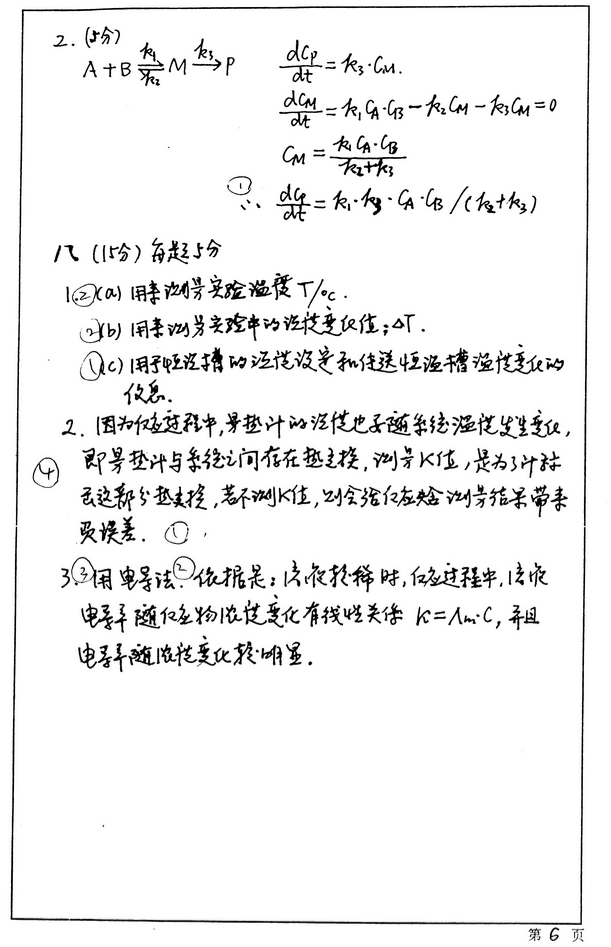 2. (5分)
A+B ⇌ M → P  k₁ k₂ k₃  dCp/dt = k₃·C_M.
dC_M/dt = k₁C_A·C_B − k₂C_M − k₃C_M = 0
C_M = k₁C_A·C_B / k₂+k₃
① ∴ dCp/dt = k₁·k₃·C_A·C_B/(k₂+k₃)
八 (15分) 每题5分
1.② (a) 用来测量实验温度 T/℃.
② (b) 用来测量实验中的温度变化值; ΔT.
① (c) 用于恒温槽的温度设定和传送恒温槽温度变化的
信息.
2. 因为反应过程中,量热计的温度也要随系统温度发生变化,
④ 即量热计与系统之间存在热交换, 测量K值, 是为了计算
这部分热交换, 若不测K值, 则会给反应焓测量结果带来
负误差. ①
3.③用电导法.② 依据是: 溶液较稀时, 反应过程中, 溶液
电导率随反应物浓度变化有线性关系 K=Λm·C, 并且
电导率随浓度变化较明显.
第 6 页